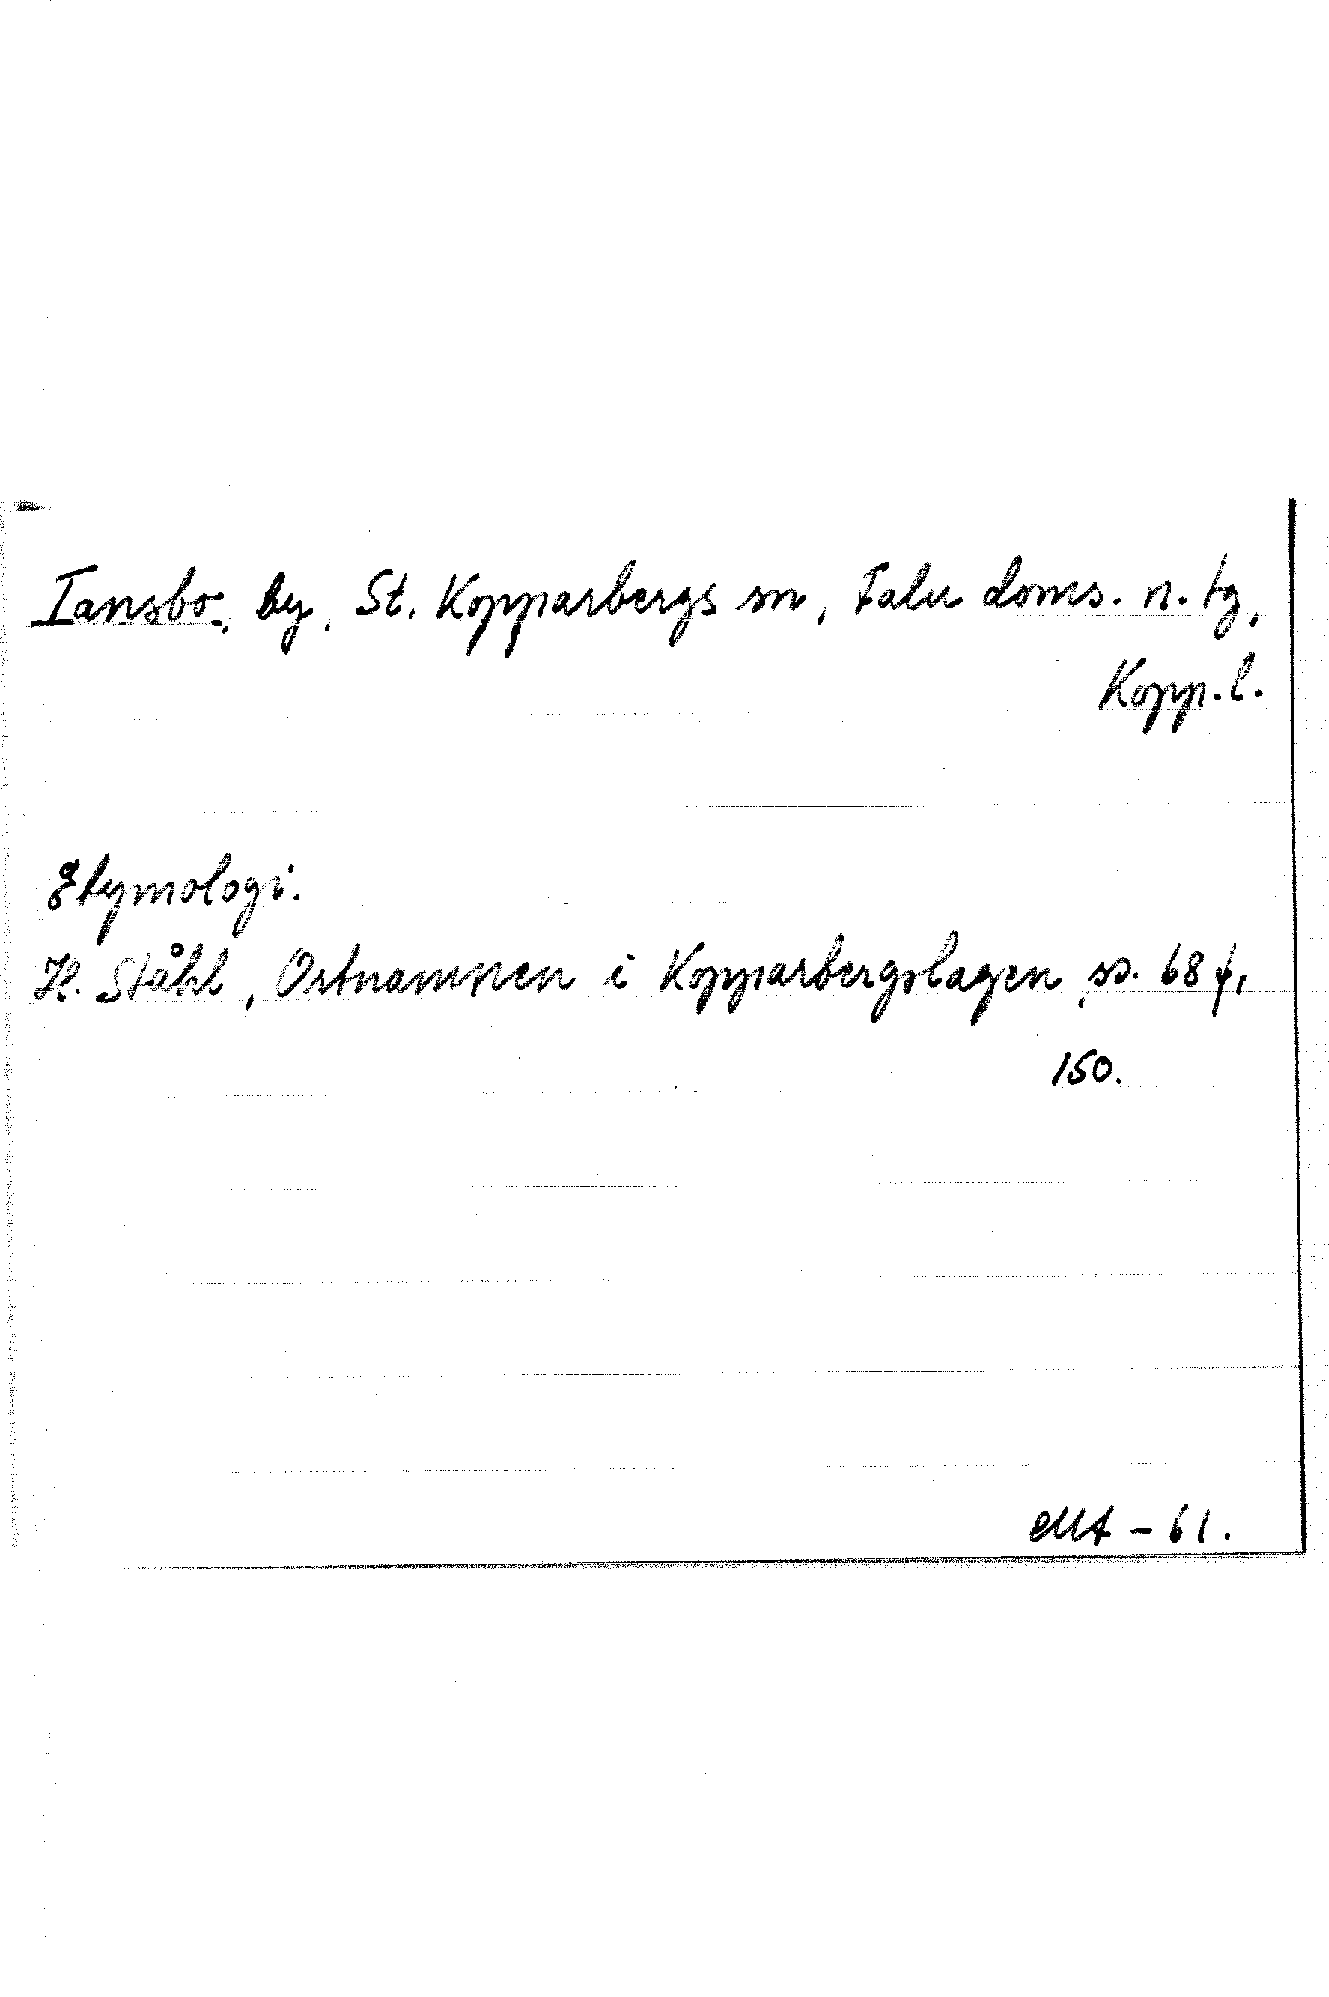 Tansbo, by, St. Kopparbergs sn, Falu doms. n. tg,
Kopp.l.
Etymologi.
H. Ståhl, Ortnamnen i Kopparbergslagen, ss. 68 f,
150.
MA - 61.